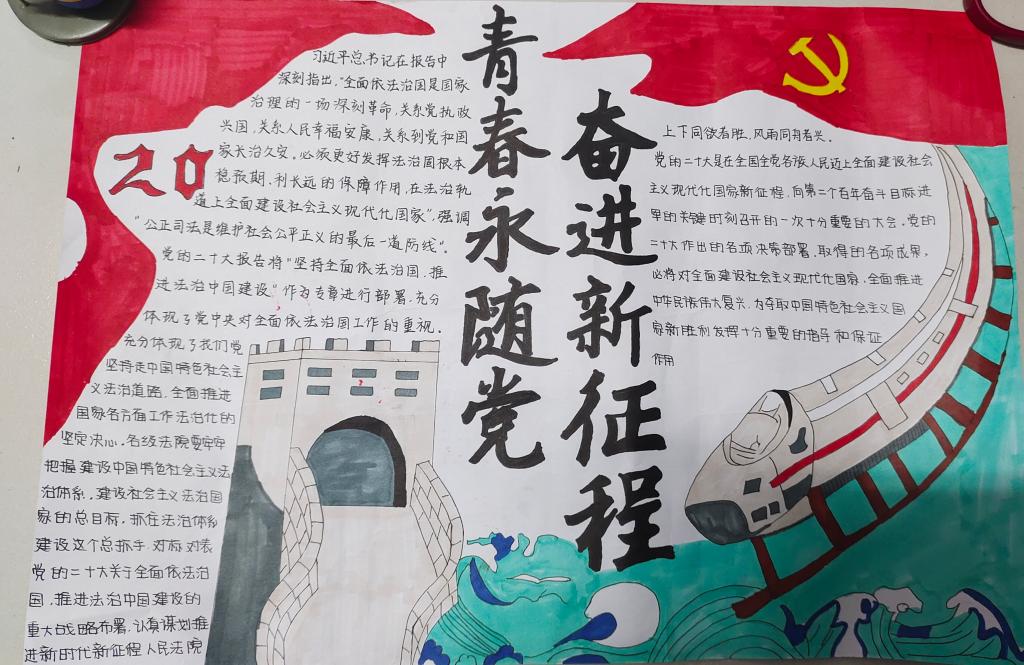 青春永随党
奋进新征程
20
习近平总书记在报告中
深刻指出，“全面依法治国是国家
治理的一场深刻革命，关系党执政
兴国，关系人民幸福安康，关系到党和国
家长治久安。必须更好发挥法治固根本
稳预期、利长远的保障作用，在法治轨
道上全面建设社会主义现代化国家”，强调
“公正司法是维护社会公平正义的最后一道防线”。
党的二十大报告将“坚持全面依法治国，推
进法治中国建设”作为专章进行部署，充分
体现了党中央对全面依法治国工作的重视。
充分体现了我们党
坚持走中国特色社会主
义法治道路，全面推进
国家各方面工作法治化的
坚定决心。各级法院要牢牢
把握建设中国特色社会主义法
治体系，建设社会主义法治国
家的总目标，抓住法治体系
建设这个总抓手，对标对表
党的二十大关于全面依法治
国，推进法治中国建设的
重大战略布署，认真谋划推
进新时代新征程人民法院
上下同欲者胜，风雨同舟者兴。
党的二十大是在全国全党各族人民迈上全面建设社会
主义现代化国家新征程，向第二个百年奋斗目标进
军的关键时刻召开的一次十分重要的大会，党的
二十大作出的各项决策部署，取得的各项成果，
必将对全面建设社会主义现代化国家，全面推进
中华民族伟大复兴，为夺取中国特色社会主义国
家新胜利发挥十分重要的指导和保证
作用